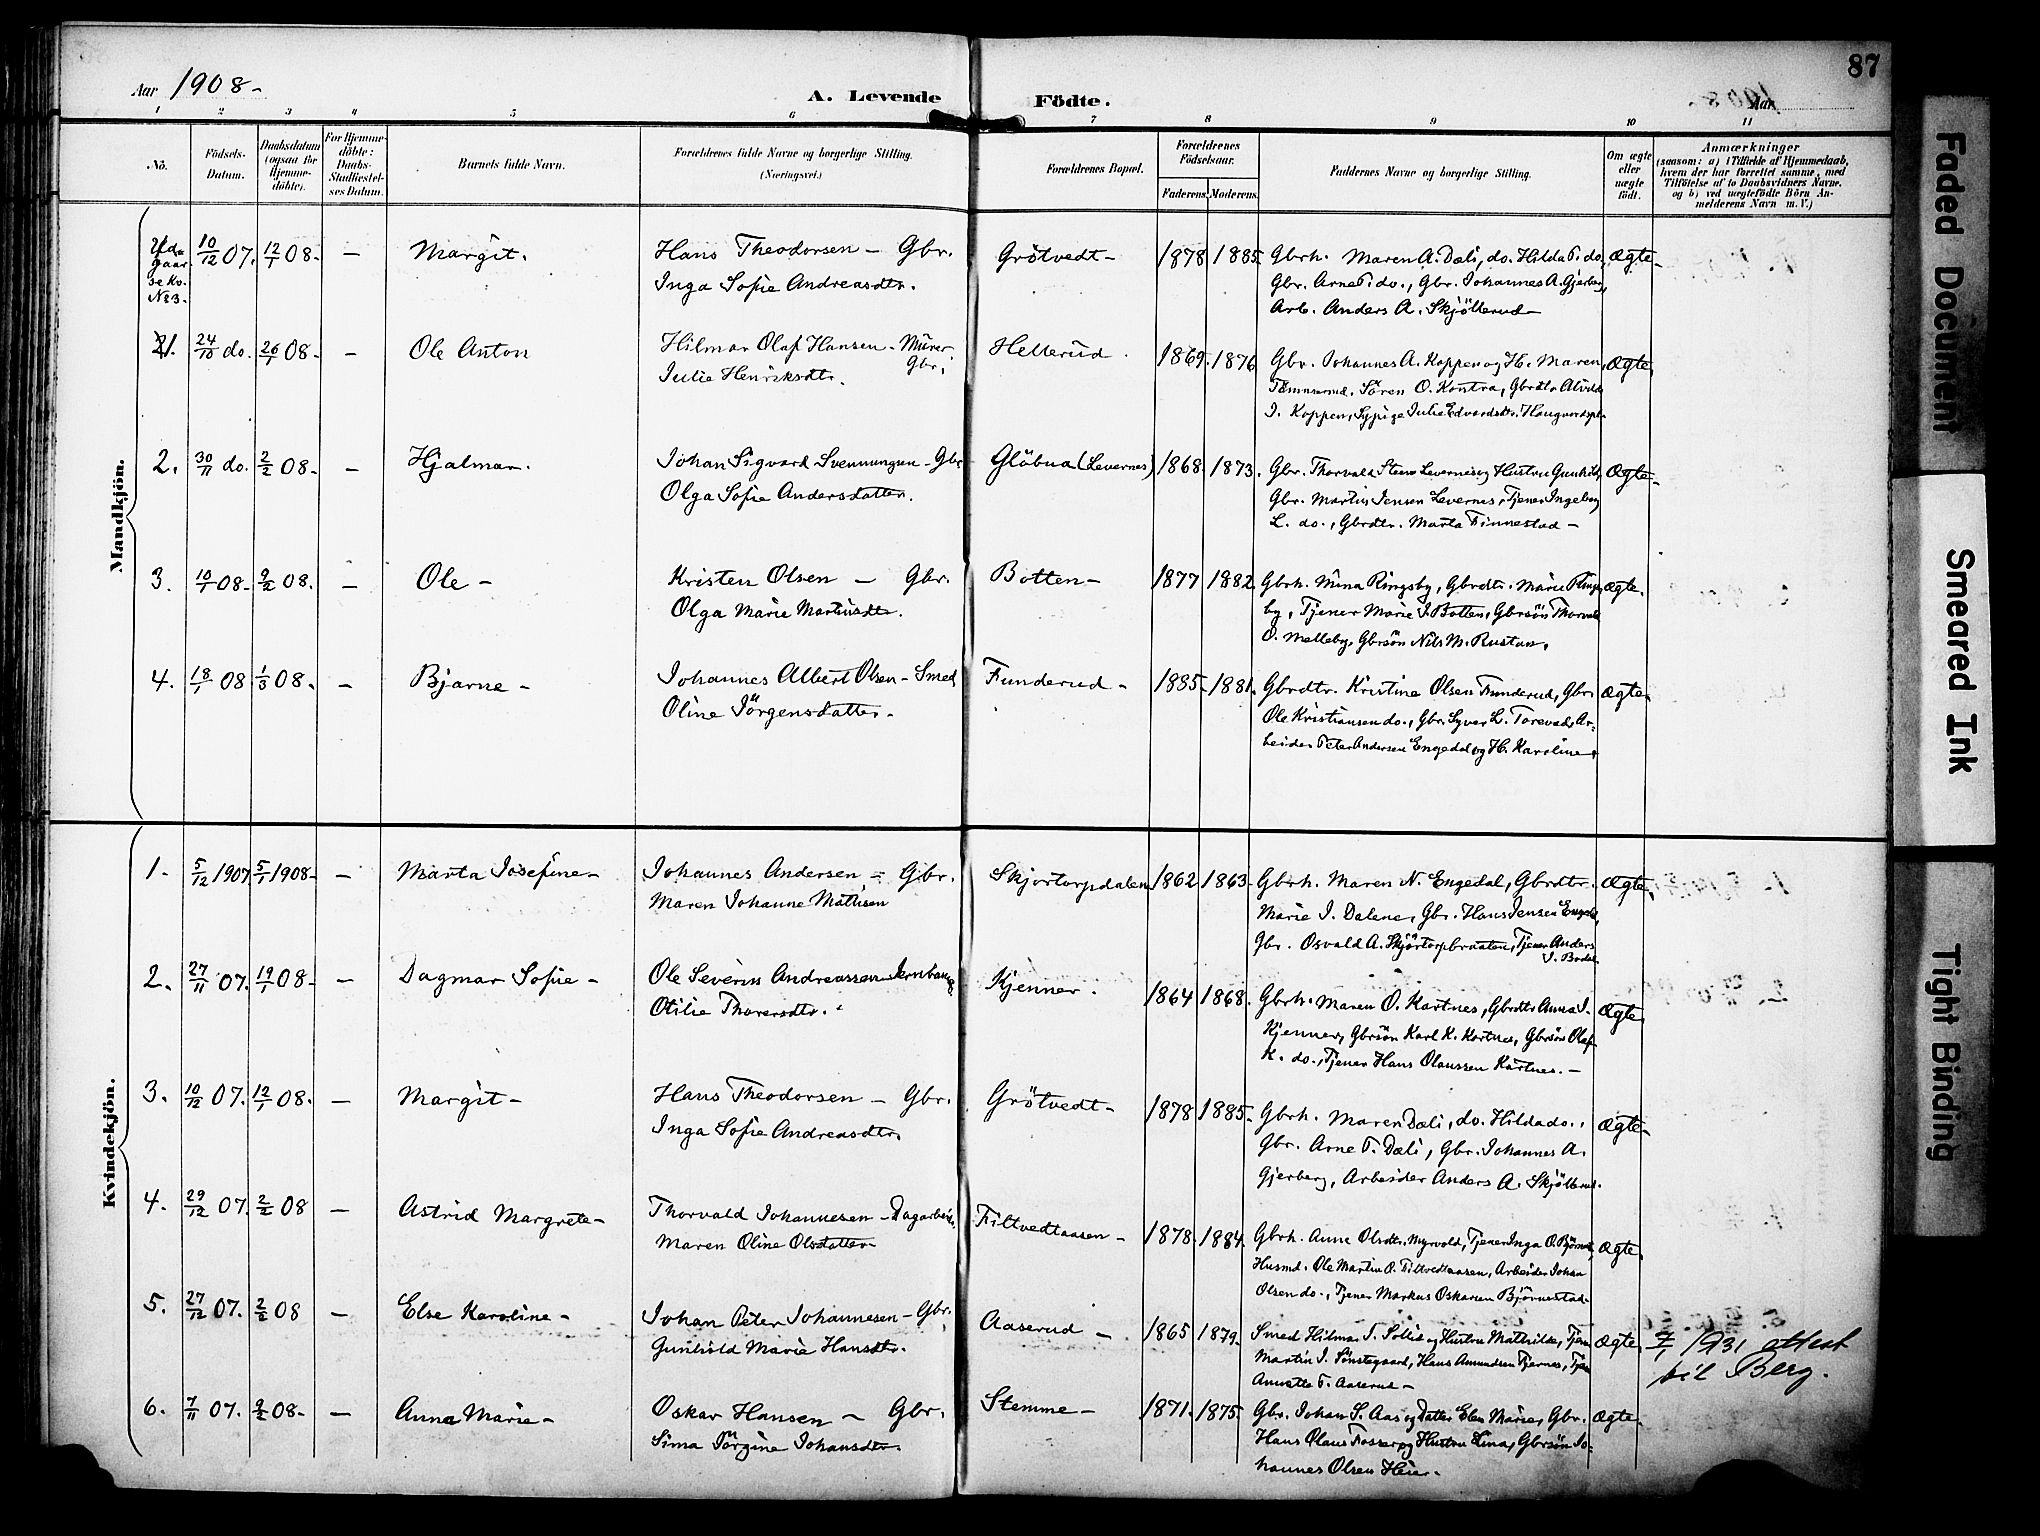 87
Aar 1908.-
A. Levende Födte.
Aar
1 2 3 4 5 6 7 8 9 10 11
No.
Födsels-Datum.
Daabsdatum (ogsaa for Hjemme-döbte).
For Hjemme-döbte: Daabs-Stadfæstel-ses Datum.
Barnets fulde Navn.
Forældrenes fulde Navne og borgerlige Stilling.
(Næringsvei.)
Forældrenes Bopæl.
Forældrenes Födselsaar.
Faderens. Moderens.
Faddernes Navne og borgerlige Stilling.
Om ægte eller uægte födt.
Anmærkninger
(saasom: a) i Tilfælde af Hjemmedaab, hvem der har forrettet samme, med Tilföielse af to Daabsvidners Navne. og b) ved uægtefödte Börn An-melderens Navn m. V.)
Mandkjön.
Udgaar se Kv. No 3. 10/12 07. 12/1 08. — Margit. Hans Theodorsen — Gbr. Grötvedt — 1878 1885. Gbrk. Maren A. Dæli, do. Hilda T. do, Ægte.
Inga Sofie Andreasdtr. Gbr. Arne T. do., Gbr. Johannes A. Gjerberg,
Arb. Anders A. Skjöllerud —
1. 24/10 do. 26/1 08. — Ole Anton Hilmar Olaf Hansen — Murer Gbr. Hellerud. 1869. 1876 Gbr. Johannes A. Koppen og H. Maren, Ægte
Julie Henriksdtr. Sören O. Kontra, Gbrdtr Alvilde
J. Koppen, Sypige Julie Edvardsdtr.
2. 30/11 do. 2/2 08. — Hjalmar. Johan Sigvard Svenningsen — Gbr. Glöbua (Levernes) 1868 1873. Gbr. Thorvald Steen Levernes og Hustru Gunhild, Ægte
Olga Sofie Andersdatter. Gbr. Martin Jensen Levernes, Tjener Ingeborg
L. do., Gbrdtr. Marta Finnestad —
3. 10/1 08. 9/2 08. — Ole — Kristen Olsen — Gbr. Botten — 1877 1882. Gbrk. Mina Ringsby, Gbrdtr. Marie Rings- Ægte.
Olga Marie Martinsdtr. by, Tjener Marie J. Botten, Gbrsön Thorvald
O. Melleby, Gbrsön Nils M. Rustan.
4. 18/1 08 1/3 08. — Bjarne — Johannes Albert Olsen — Smed Funderud — 1885. 1881. Gbrdtr. Kristine Olsen Funderud, Gbr. Ægte.
Oline Jörgensdatter. Ole Kristiansen do., Gbr. Syver L. Torerud, Ar-
beider Peter Andersen Engedal og H. Karoline.
Kvindekjön.
1. 5/12 1907 5/1 1908. — Marta Josefine — Johannes Andersen — Gbr. Skjortorpdalen 1862 1863. Gbrk. Maren N. Engedal, Gbrdtr. Ægte
Maren Johanne Mathisen Marie J. Dalene, Gbr. Hans Jensen Engedal,
Gbr. Osvald A. Skjörtorpbraaten, Tjener Anders
2. 27/11 07. 19/1 08. — Dagmar Sofie — Ole Severin Andreassen Kjenner. 1864 1868. Gbrk. Maren O. Kartnes, Gbrdtr. Anna J. Ægte.
Otilie Thorersdtr. Kjenner, Gbrsön Karl K. Kartnes, Gbrsön Olaf
K. do., Tjener Hans Olaussen Kartnes. —
3. 10/12 07. 12/1 08. — Margit — Hans Theodorsen — Gbr. Grötvedt — 1878 1885. Gbrk. Maren Dæli, do. Hilda do., Ægte.
Inga Sofie Andreasdtr. Gbr. Arne T. Dæli, Gbr. Johannes A.
Gjerberg, Arbeider Anders A. Skjöllerud.
4. 29/12 07. 2/2 08 — Astrid Margrete — Thorvald Johannesen — Dagarbeider Filtvedtaasen — 1878. 1884. Gbrk. Anne Olsdtr. Myrvold, Tjener Inga O. Ægte.
Maren Oline Olsdatter — Husmd. Ole Martin O. Filtvedtaasen, Arbeider Johan
Olsen do., Tjener Markus Oskarsen Björnestad.
5. 27/12 07. 2/2 08 — Else Karoline — Johan Peter Johannesen — Gbr. Aaserud — 1865 1879. Smed Hilmar T. Sollid og Hustru Mathilde, Tjener Ægte. 7/1 1931 attest
Gunhild Marie Hansdtr. Martin J. Sönstegaard, Hans Amundsen Tjernes, til Berg.
Annette T. Aaserud —
6. 7/11 07. 9/2 08. — Anna Marie — Oskar Hansen — Gbr. Stemme — 1871. 1875. Gbr. Johan S. Aas og Datter Elen Marie, Gbr. Ægte.
Sina Jörgine Johansdtr. Hans Olaus Fosser og Hustru Lina, Gbrsön Jo-
hannes Olsen Heier.
Faded Document
Smeared Ink
Tight Binding